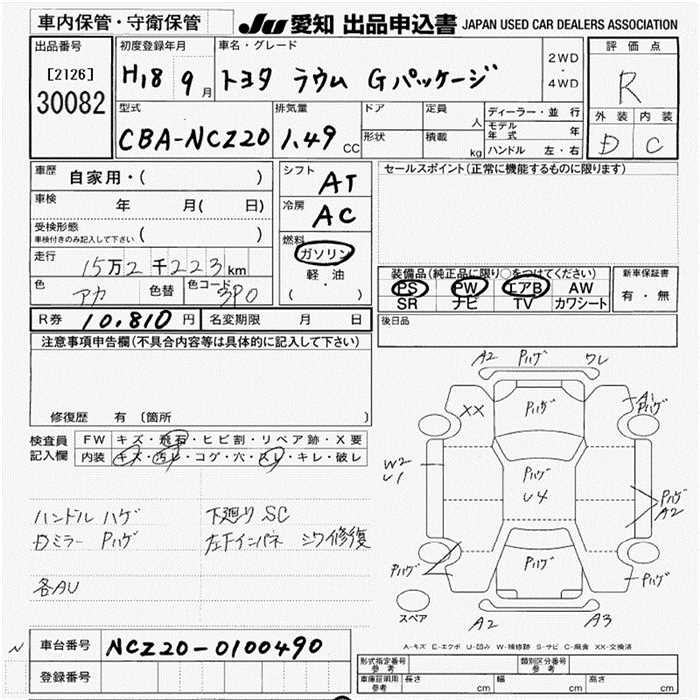 車内保管・守衛保管
JU 愛知 出品申込書 JAPAN USED CAR DEALERS ASSOCIATION
出品番号
[2126]
30082
初度登録年月
H18 9月
車名・グレード
トヨタ ラウム Gパッケージ
2WD
・
4WD
評価点
R
外装 内装
D C
型式
CBA-NCZ20
排気量
1.49 CC
ドア
形状
定員 人
積載 kg
ディーラー・並行
モデル年式 年
ハンドル 左・右
車歴 自家用・( )
車検 年 月( 日)
受検形態
車検付きのみ記入して下さい ( )
走行 15万2千223km
色 アカ 色替 色コード 3P0
シフト AT
冷房 AC
燃料
ガソリン
軽・油
( ・ )
セールスポイント(正常に機能するものに限ります)
装備品(純正品に限り○をつけてください)
PS PW エアB AW
SR ナビ TV カワシート
新車保証書
有・無
R券 10,810円 名変期限 月 日
後日品
注意事項申告欄(不具合内容等は具体的に記入して下さい)
修復歴 有 〔箇所
検査員
記入欄
FW キズ・飛石・ヒビ割・リペア跡・X要
内装 キズ・汚レ・コゲ・穴・スレ・キレ・破レ
ハンドル ハゲ 下廻り SC
Dミラー Pハゲ 左下インパネ シワ修復
各AU
A2 Pハゲ ワレ
XX Pハゲ A1 Pハゲ
W2
U1
Pハゲ
U4
Pハゲ
A2
Pハゲ Pハゲ Pハゲ
スペア
A2 A3
A-キズ E-エクボ U-凹み W-補修跡 S-サビ C-腐食 XX-交換済
N
車台番号 NCZ20-0100490
登録番号
形式指定番号
参考
類別区分番号
参考
車庫証明用
参考
長さ cm 幅 cm 高さ cm